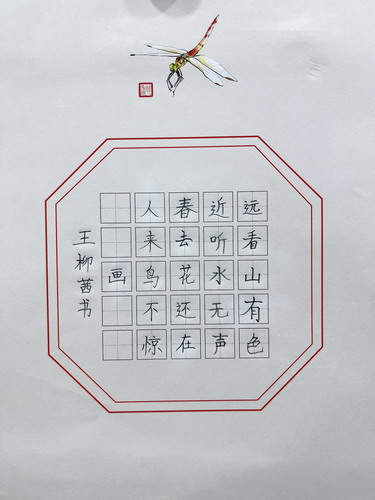 远看山有色
近听水无声
春去花还在
人来鸟不惊
画
王柳茜书